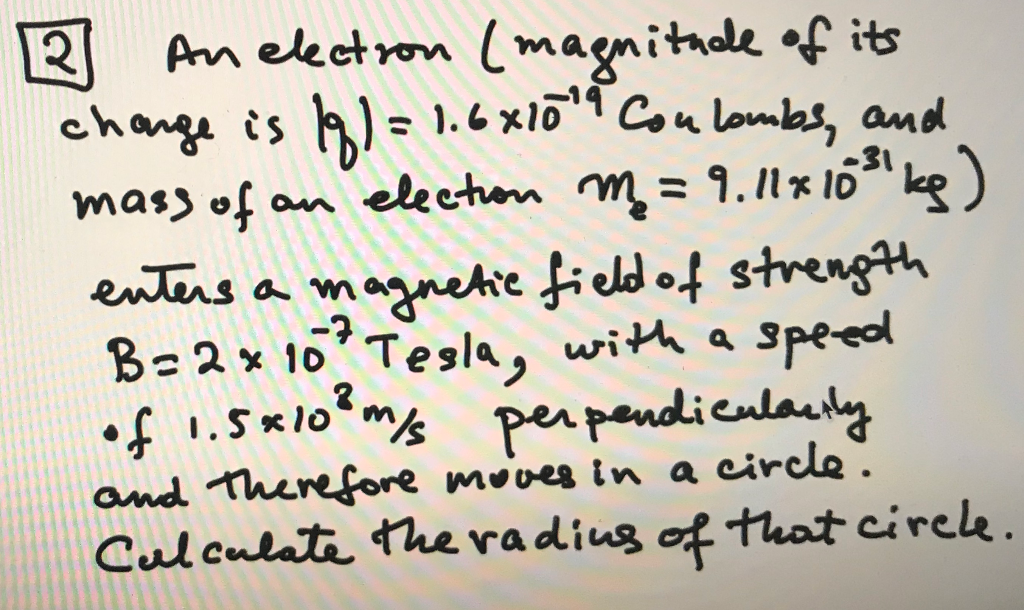 2 An electron (magnitude of its
charge is |q| = 1.6 x 10⁻¹⁹ Coulombs, and
mass of an electron mₑ = 9.11 x 10⁻³¹ kg)
enters a magnetic field of strength
B = 2 x 10⁻⁷ Tesla, with a speed
of 1.5 x 10⁸ m/s perpendicularly
and therefore moves in a circle.
Calculate the radius of that circle.